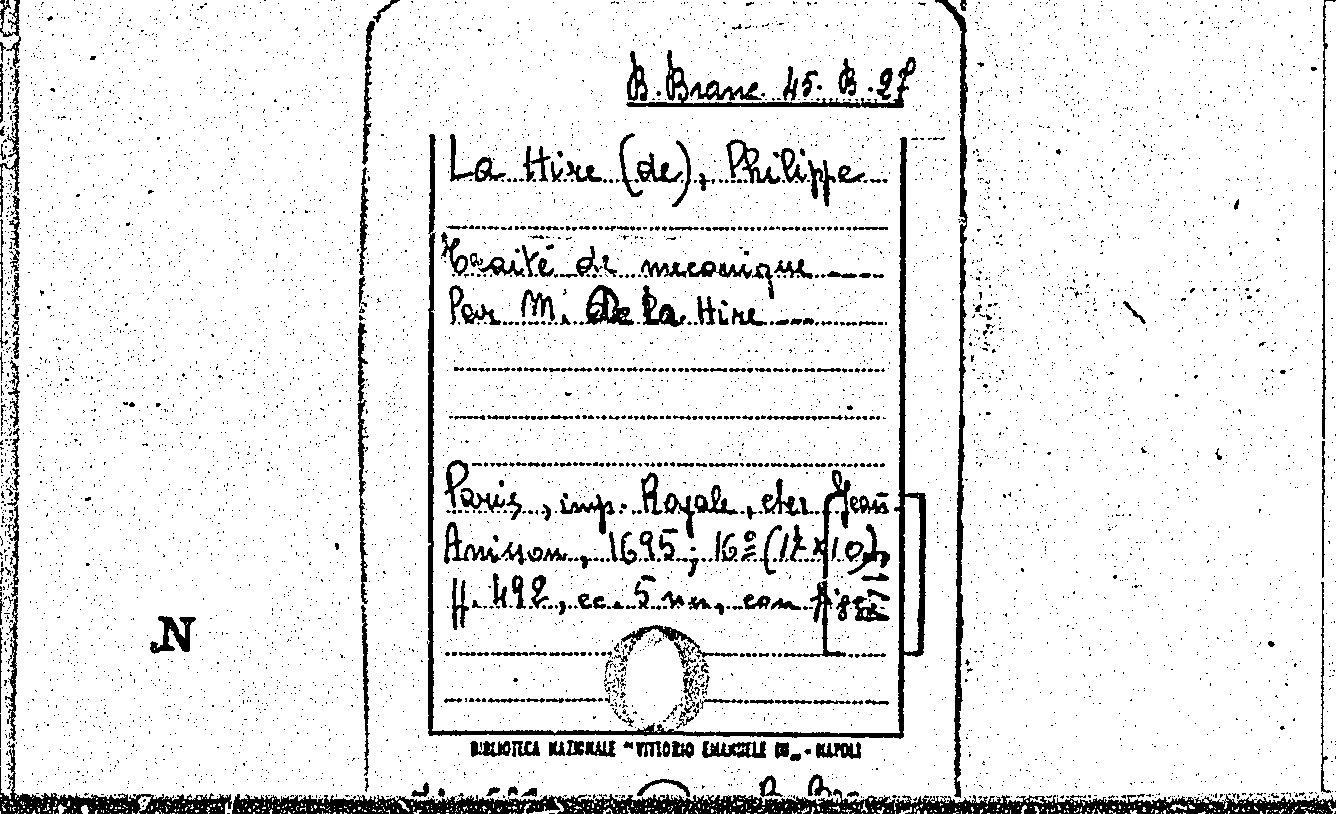 B. Branc. 45. B. 27
La Hire (de), Philippe
Traité de mecanique ----
Par M. De la Hire ---
Paris, imp. Royale, cter Jean
Anisson, 1695; 16º (17x10),
ff. 492, cc. 5 nn, con figg.
N
BIBLIOTECA NAZIONALE "VITTORIO EMANUELE III" - NAPOLI